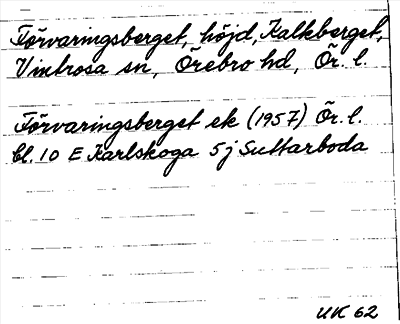 Förvaringsberget, höjd, Kalkberget,
Vintrosa sn, Örebro hd, Ör. l.
Förvaringsberget ek (1957) Ör. l.
bl. 10 E Karlskoga 5j Suttarboda
UK 62